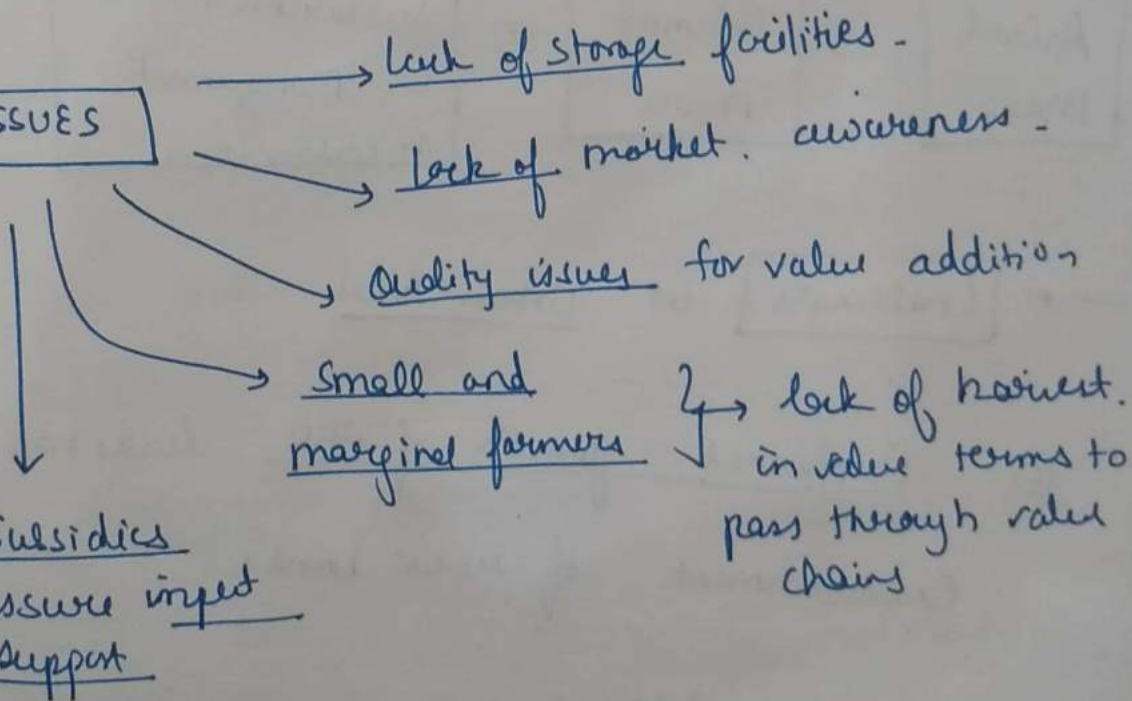 SSUES
lack of storage facilities -
lack of market. awareness -
Quality issues for value addition
small and
marginal farmers
lack of harvest.
in value terms to
pass through value
chains
subsidies
ssure input
support